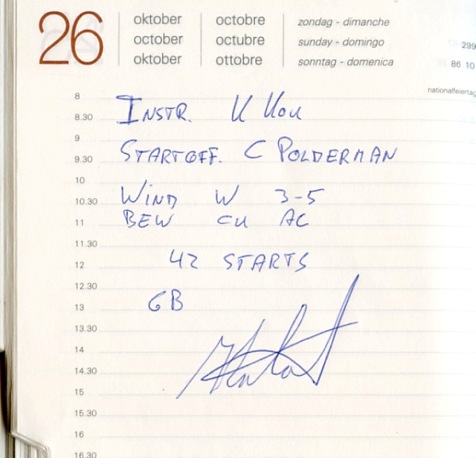 26
oktober octobre zondag - dimanche
october octubre sunday - domingo
oktober ottobre sonntag - domenica
299
86 10
nationalfeiertag
8
INSTR. K KOK
8.30
9
STARTOFF. C POLDERMAN
9.30
10
WIND W 3-5
10.30
BEW CU AC
11
11.30
42 STARTS
12
12.30
GB
13
13.30
14
14.30
15
15.30
16
16.30